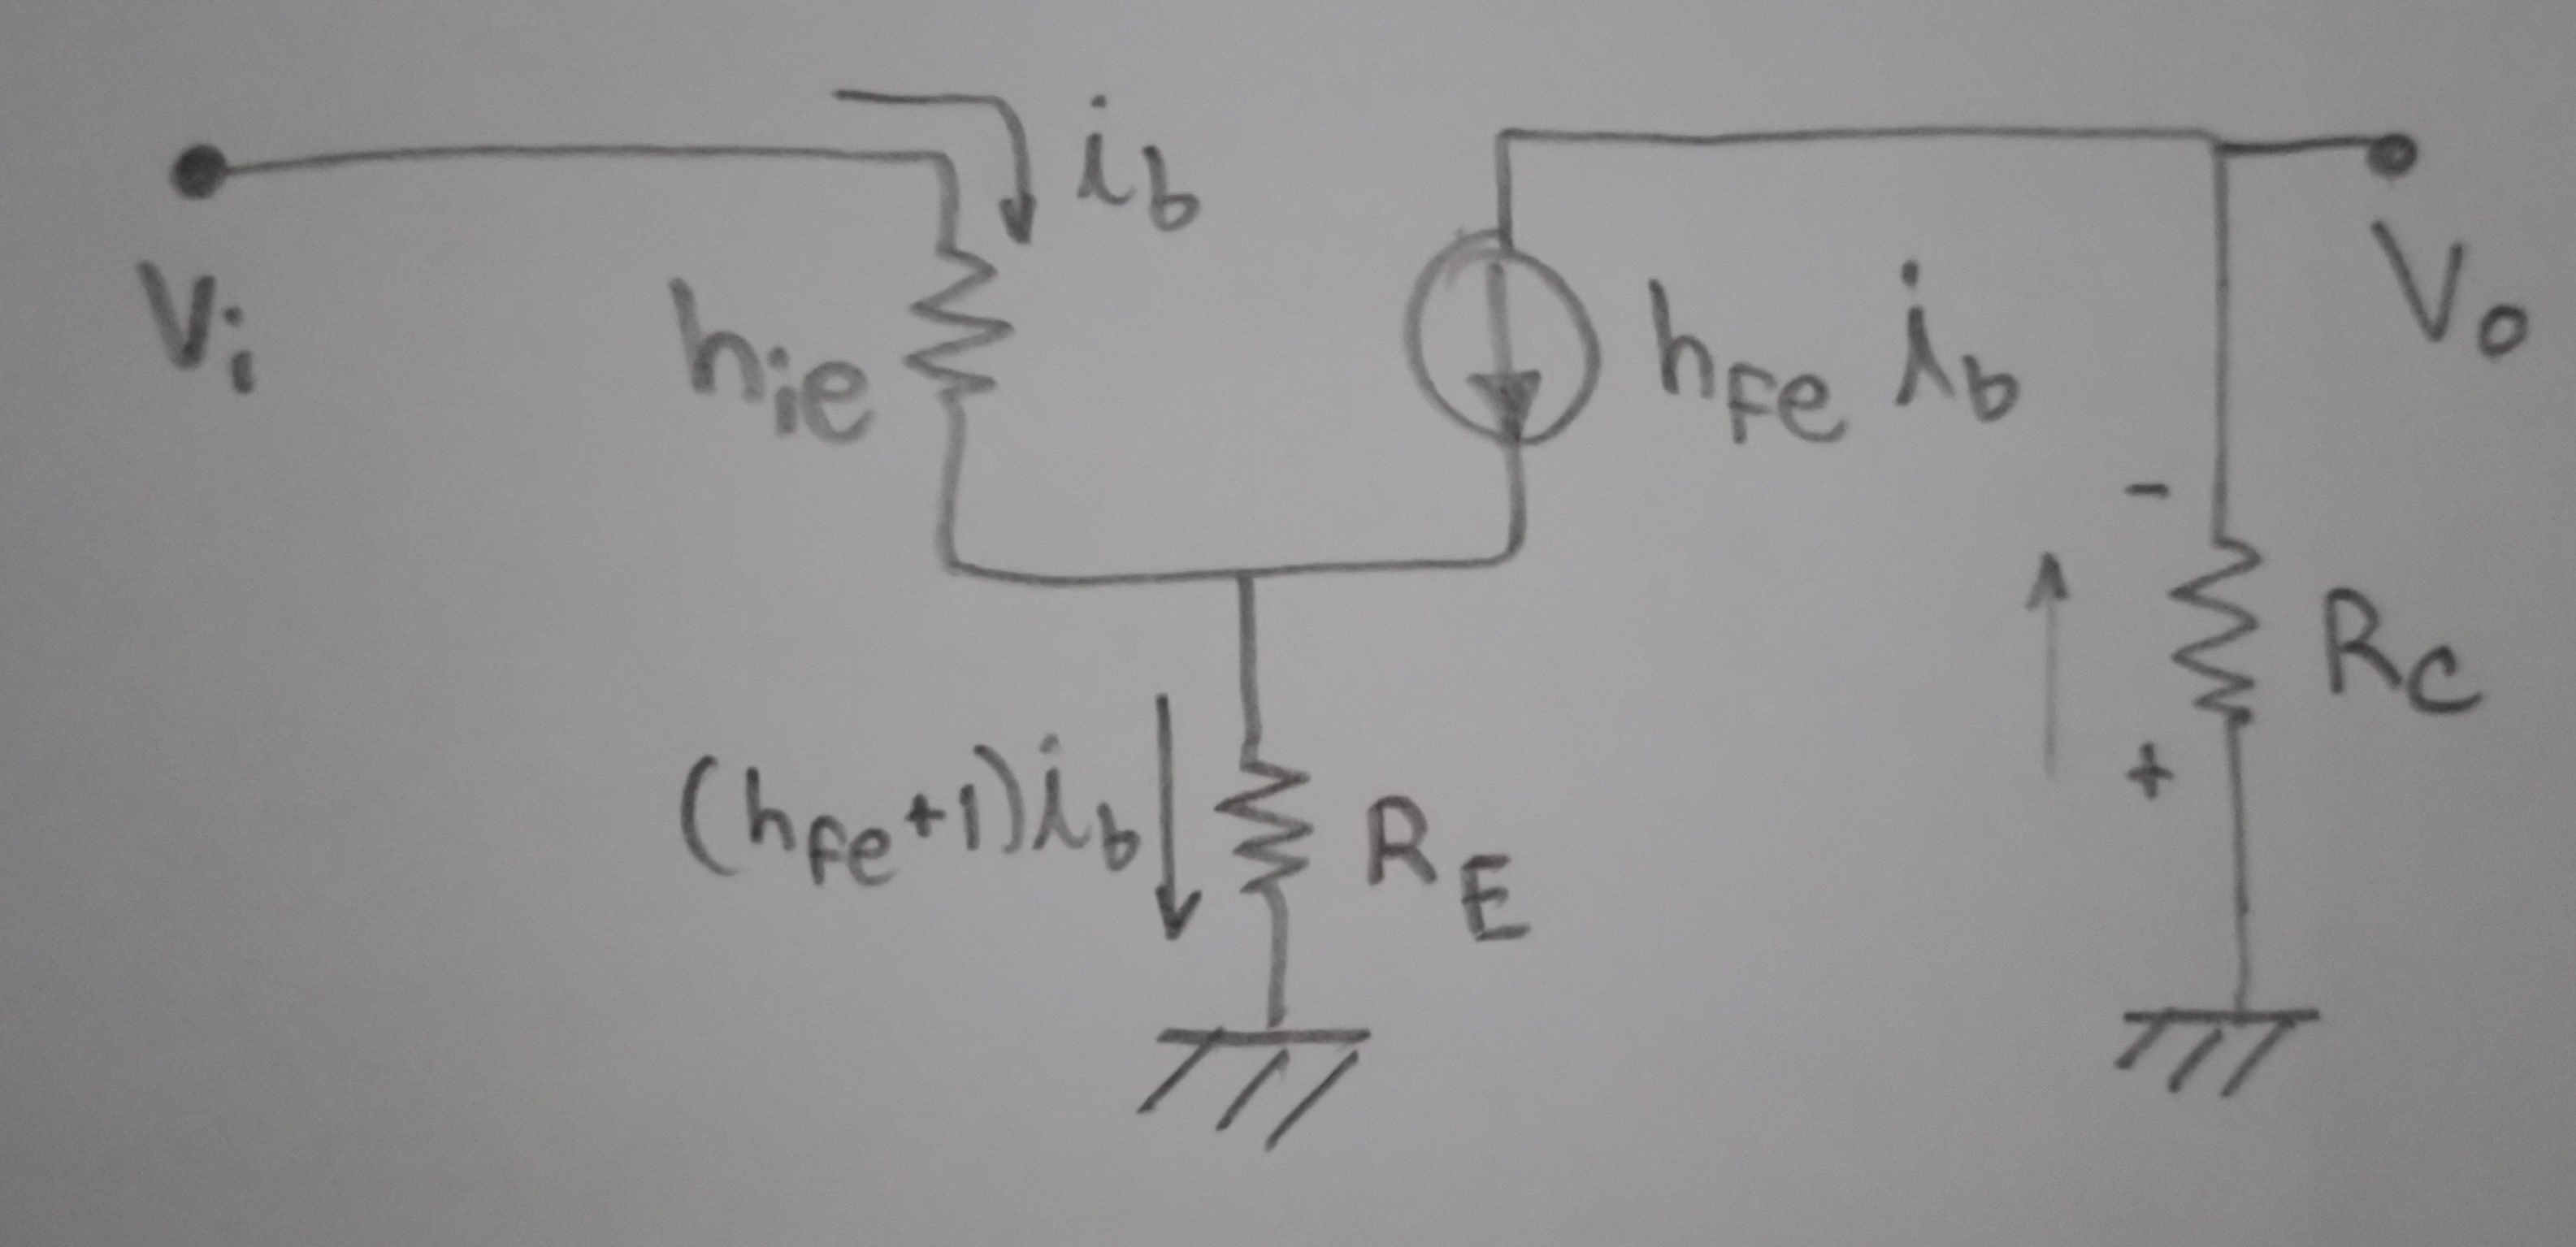 ib
Vi
hie
hfe ib
Vo
-
RC
+
(hfe+1)ib
RE